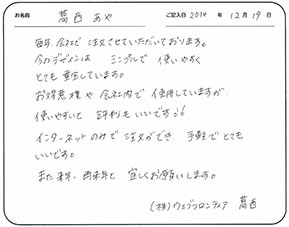 お名前 葛西 あや ご記入日 2014 年 12 月 19 日
毎年、会社で 注文させていただいております。
今のデザインは シンプルで 使いやすく
とても 重宝しています。
お得意様や 会社内で 使用していますが
使いやすいと 評判も いいです!!
インターネットのみで 注文ができ 手軽で とても
いいです。
また 来年、再来年と 宜しくお願いします。
(株)ウェブフロンティア 葛西